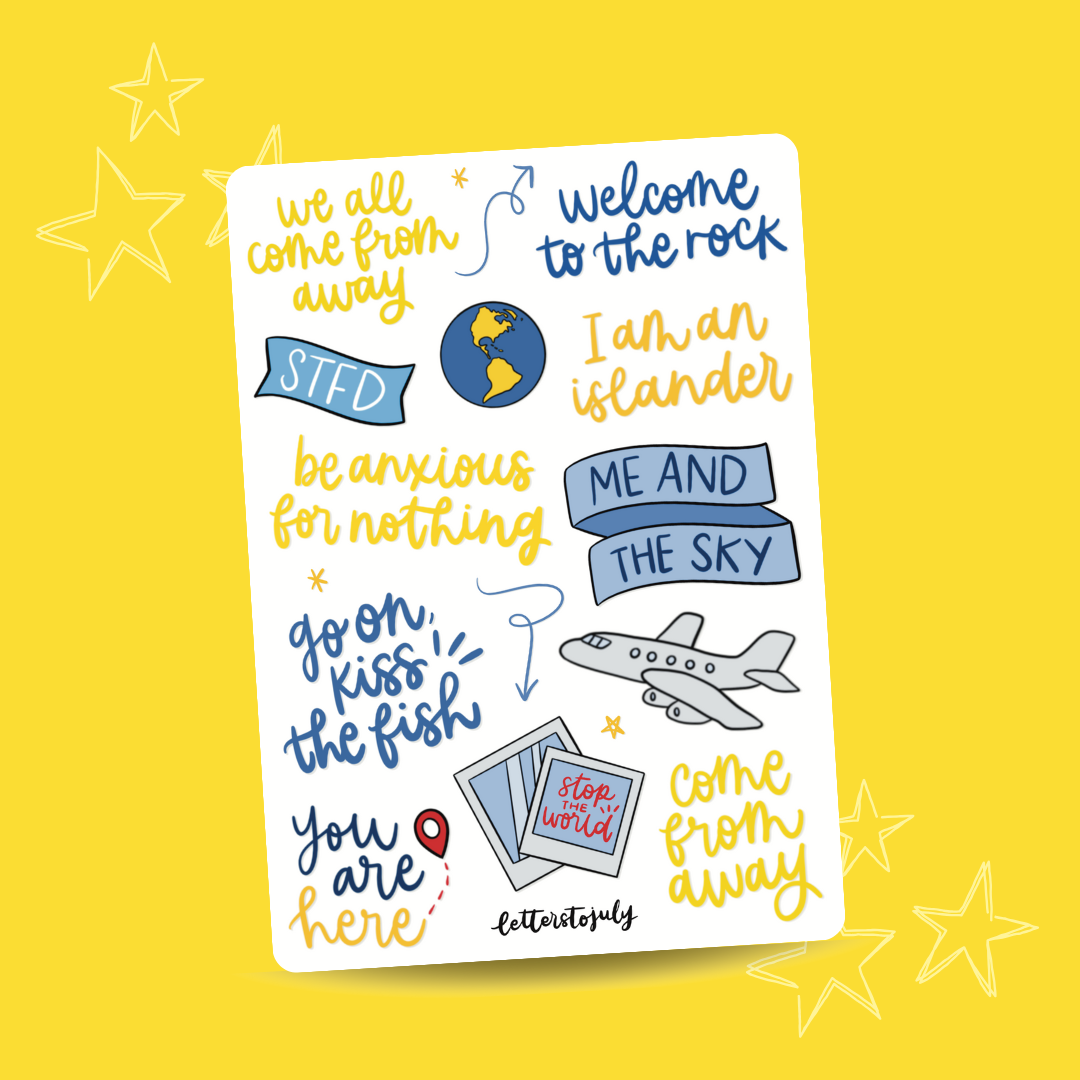 we all
come from
away
welcome
to the rock
STFD
I am an
islander
be anxious
for nothing
ME AND
THE SKY
go on,
kiss
the fish
stop
THE
world
come
from
away
you
are
here
letterstojuly